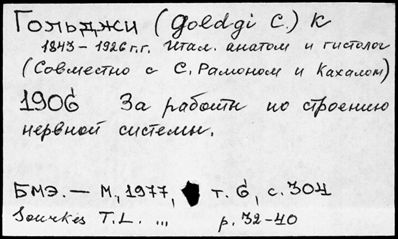 Гольджи (Goldgi C.) К
1843 – 1926 г.г. Итал. анатом и гистолог
(Совместно с С. Рамоном и Кахалом)
1906 За работы по строению
нервной системы.
БМЭ. — М, 1977, т. 6, с. 304
Sourkes T.L. ,,, p. 32-40